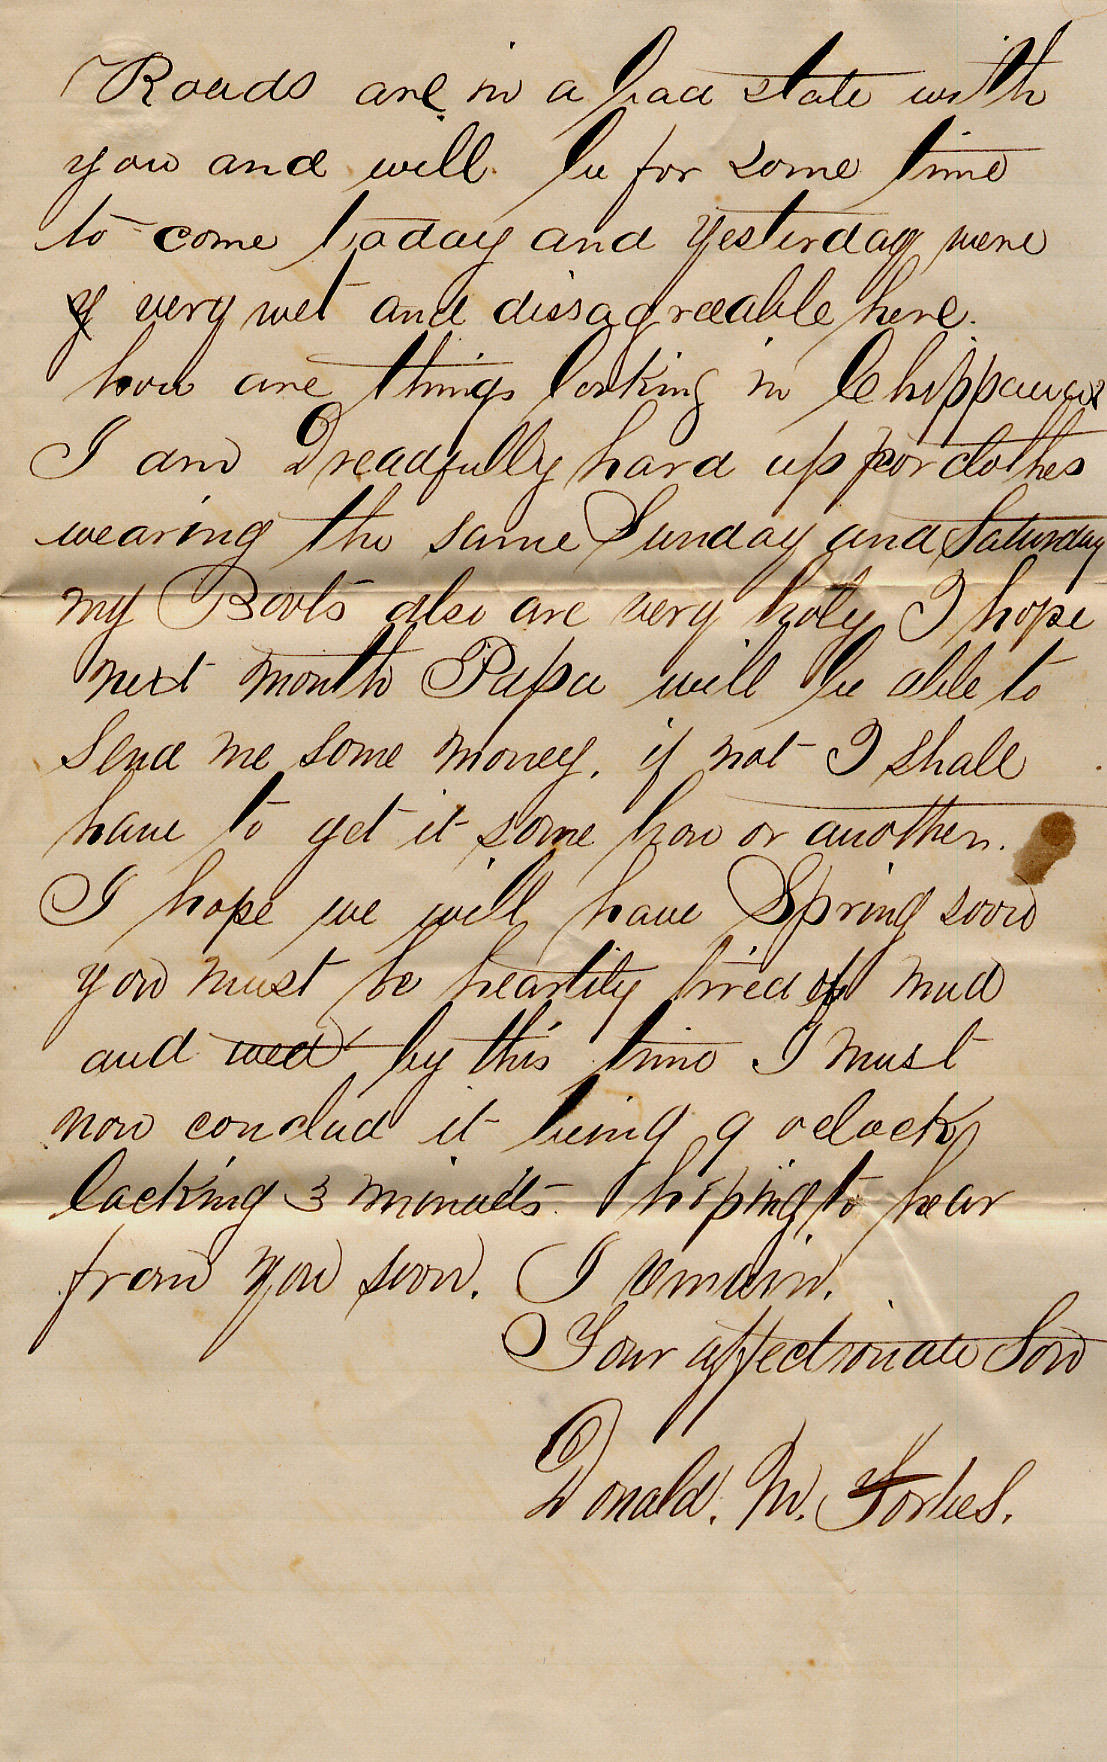 Roads are in a bad state with
you and will be for some time
to come today and yesterday were
y very wet and dissagreeable here.
how are things looking in Chippawa
I am Dreadfully hard up for clothes
wearing the same Sunday and Saturday
my Boots also are very holy I hope
next month Papa will be able to
send me some money, if not I shall
have to get it some how or another.
I hope we will have Spring soon
you must be heartily tired of mud
and wed by this time I must
now conclud it being 9 oclock
lacking 3 minuets. hoping to hear
from you soon. I remain.
Your affectionate Son
Donald. M. Forbes.